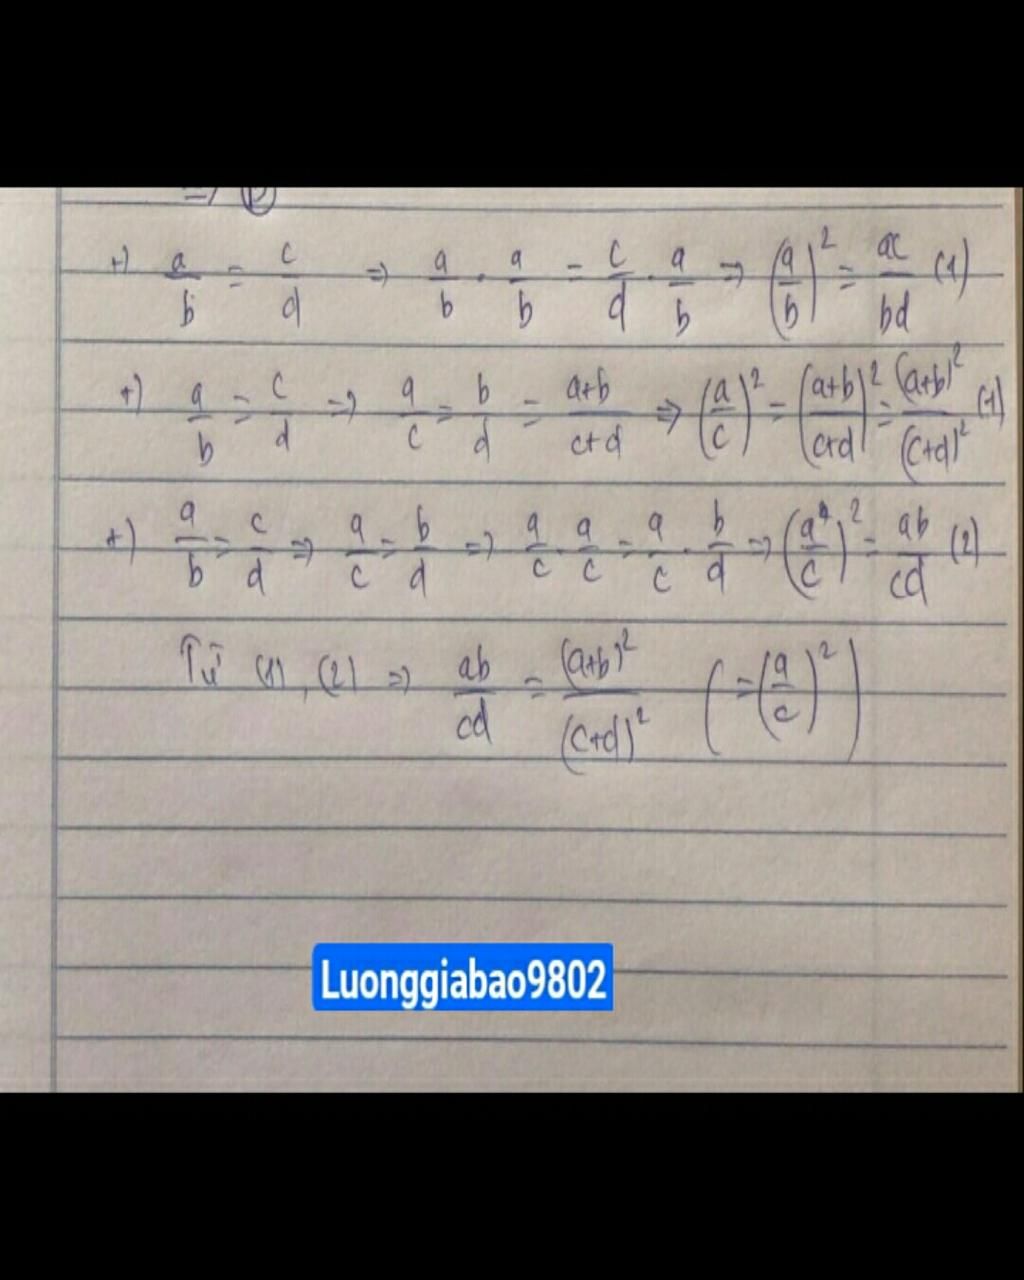 => (P)
+) a/b = c/d => a/b . a/b = c/d . a/b => (a/b)² = ac/bd (1)
+) a/b = c/d => a/c = b/d = a+b/c+d => (a/c)² = (a+b/c+d)² = (a+b)²/(c+d)² (1)
+) a/b = c/d => a/c = b/d => a/c . a/c = a/c . b/d => (a/c)² = ab/cd (2)
Từ (1), (2) => ab/cd = (a+b)²/(c+d)² (= (a/c)²)
Luonggiabao9802